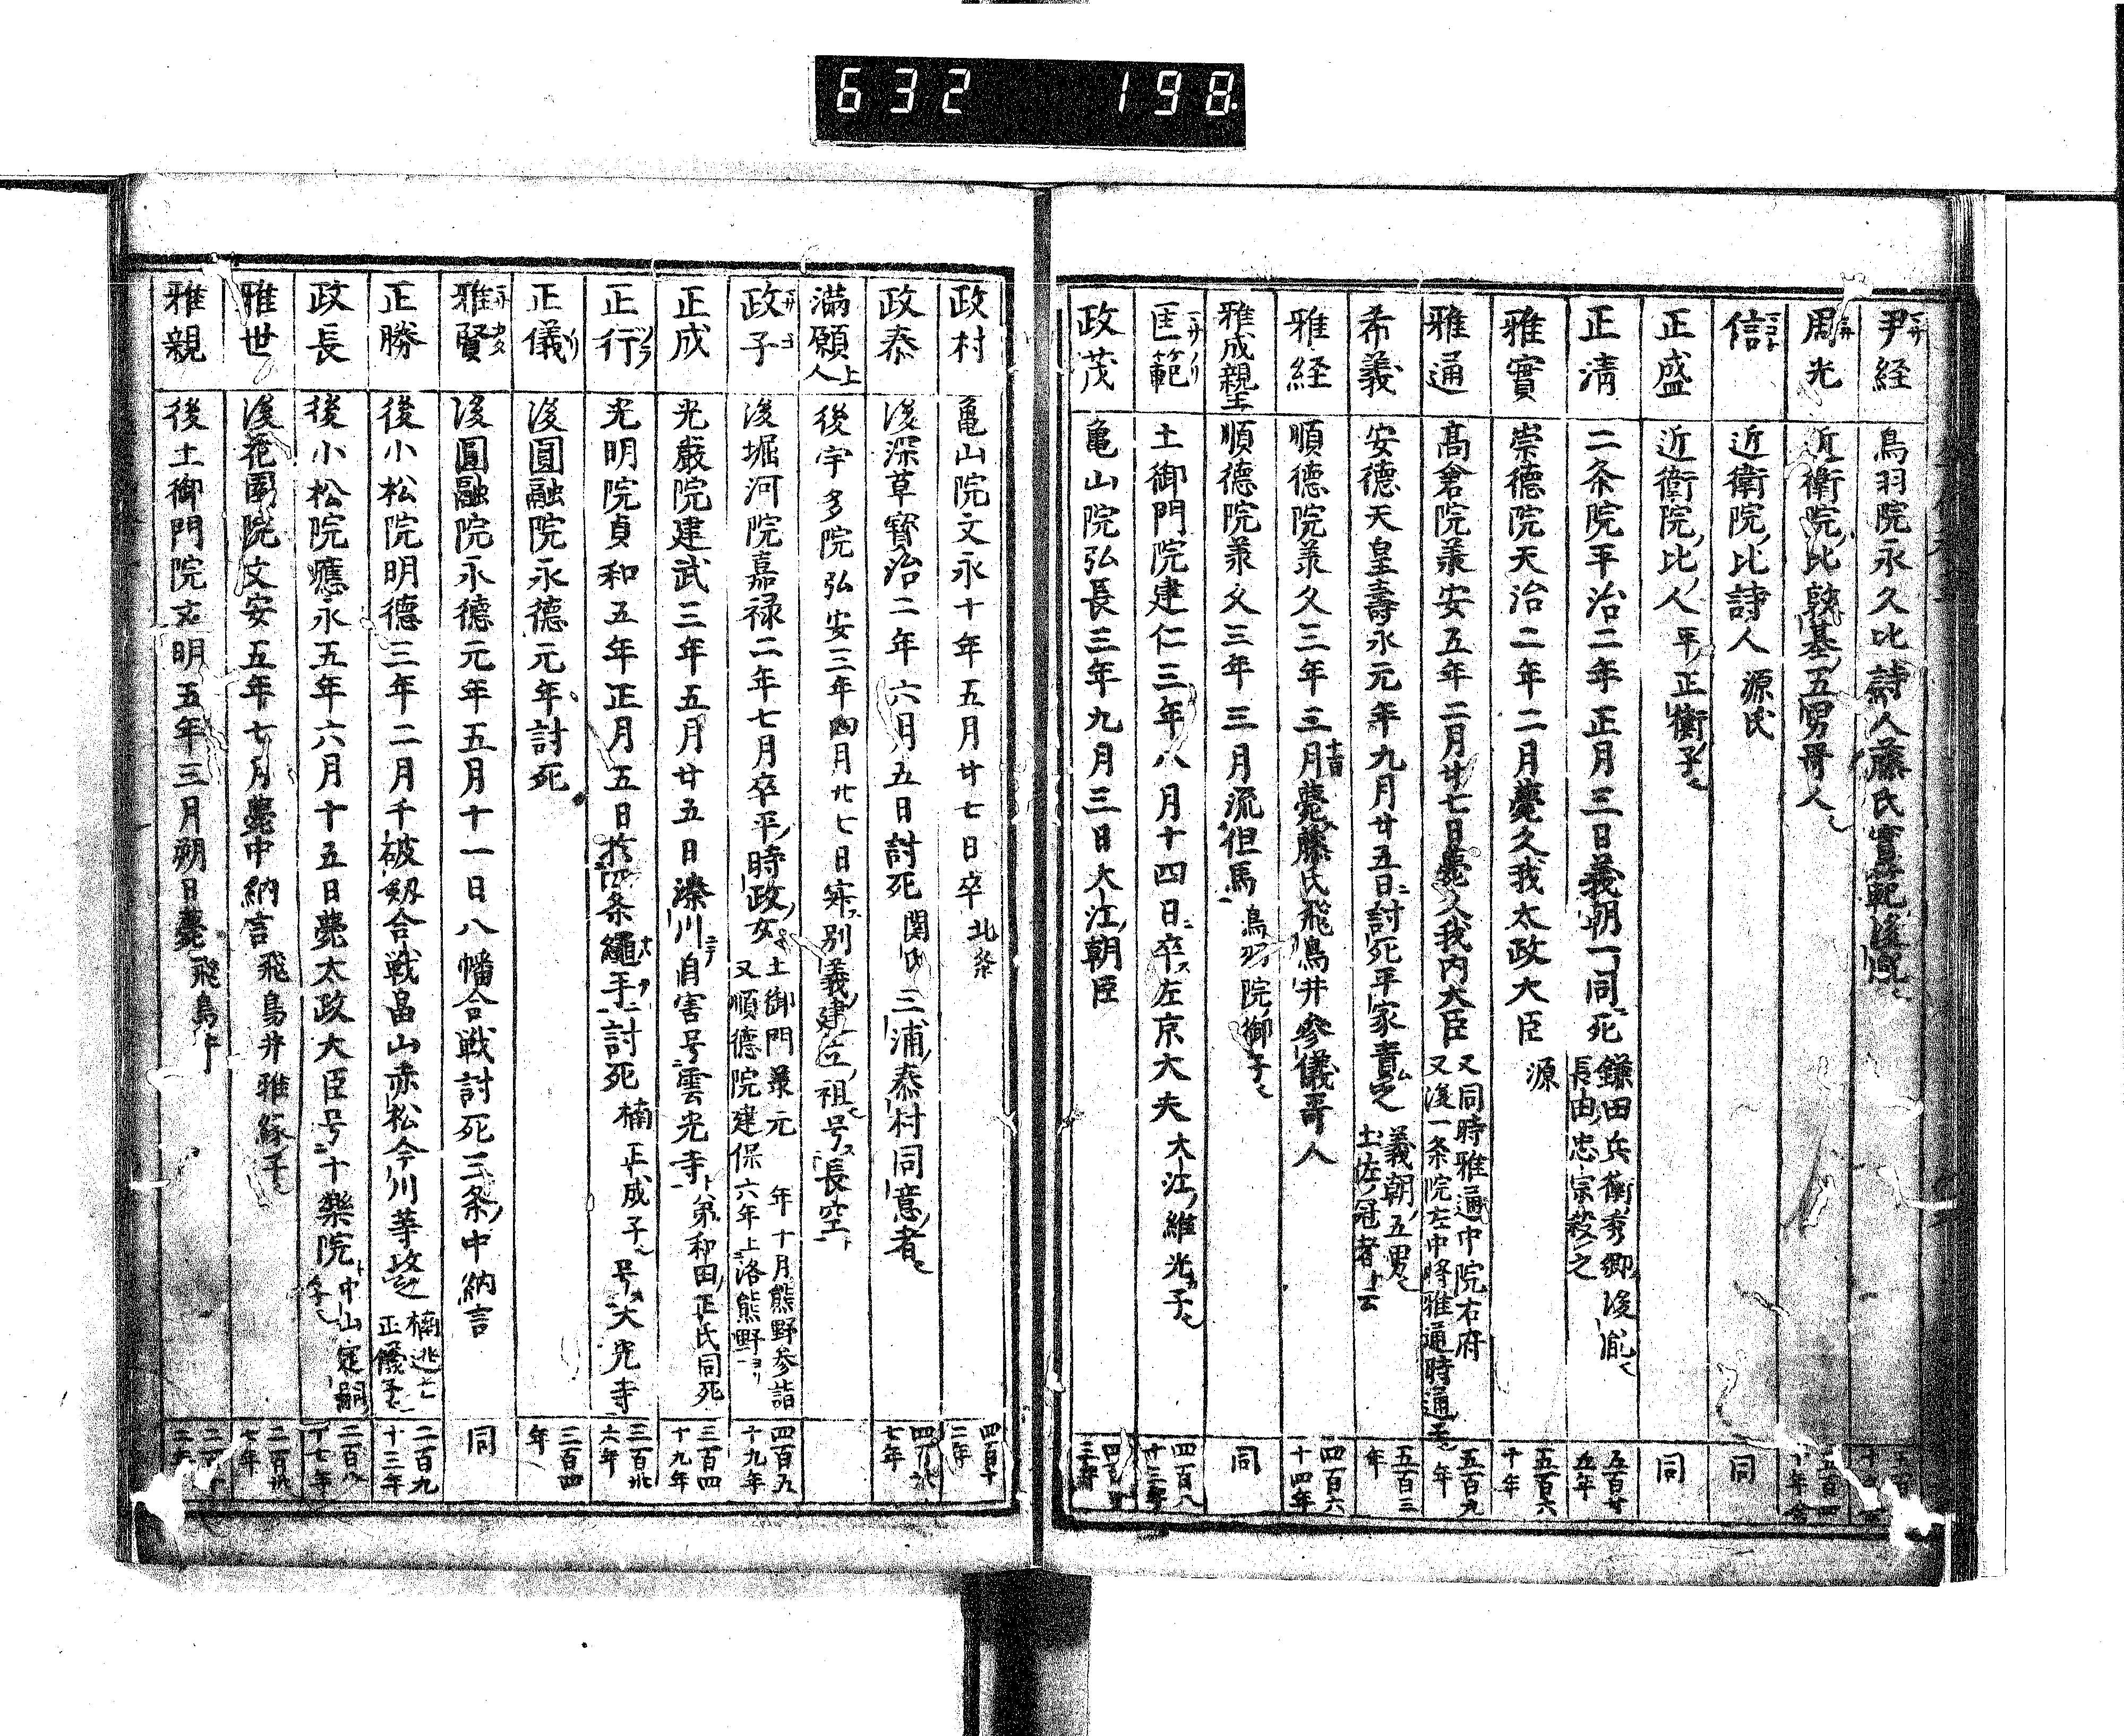 632 198.
尹経 鳥羽院永久比詩人藤氏實範後胤
周光 近衛院比敦基五男哥人
信 近衛院比詩人 源氏
正盛 近衛院比人平正衡子 同
正清 二条院平治二年正月三日義朝一同死 鎌田兵衛秀郷後胤 長田忠宗殺之 五百廿五年
雅實 崇徳院天治二年二月薨久我太政大臣 源 五百六十年
雅通 髙倉院兼安五年二月廿七日薨久我内大臣 又同時雅通中院右府 又後一条院左中将雅通時通子 五百九年
希義 安徳天皇壽永元年九月廿五日討死平家責之 義朝五男 土佐冠者ト云 五百三年
雅経 順徳院兼久三年三月薨藤氏飛鳥井参儀哥人 四百六十四年
雅成親王 順徳院兼久三年三月流但馬 鳥羽院御子 同
匡範 土御門院建仁三年八月十四日卒左京大夫 大江維光子 四百八十三年
政茂 亀山院弘長三年九月三日大江朝臣
政村 亀山院文永十年五月廿七日卒 北条 四百十二年
政泰 後深草寳治二年六月五日討死 関氏 三浦泰村同意者
満願上人 後宇多院弘安三年四月廿七日寂別義建立祖号長空
政子 後堀河院嘉禄二年七月卒平時政女 土御門兼元年十月熊野参詣 又順徳院建保六年上洛熊野ヨリ 四百五十九年
正成 光厳院建武三年五月廿五日湊川自害号雲光寺 弟和田正氏同死 三百四十九年
正行 光明院貞和五年正月五日於四条縄手討死 楠正成子 号大兜寺 三百卅六年
正儀 後圓融院永徳元年討死 三百四年
雅賢 後圓融院永徳元年五月十一日八幡合戦討死三条中納言 同
正勝 後小松院明徳三年二月千破剱合戦畠山赤松今川等攻之 楠逃亡 正儀子 二百九十三年
政長 後小松院應永五年六月十五日薨太政大臣号十樂院 中山定嗣子 二百八十七年
雅世 後花園院文安五年七月薨中納言 飛鳥井雅縁子 二百卅七年
雅親 後土御門院文明五年三月朔日薨 飛鳥井